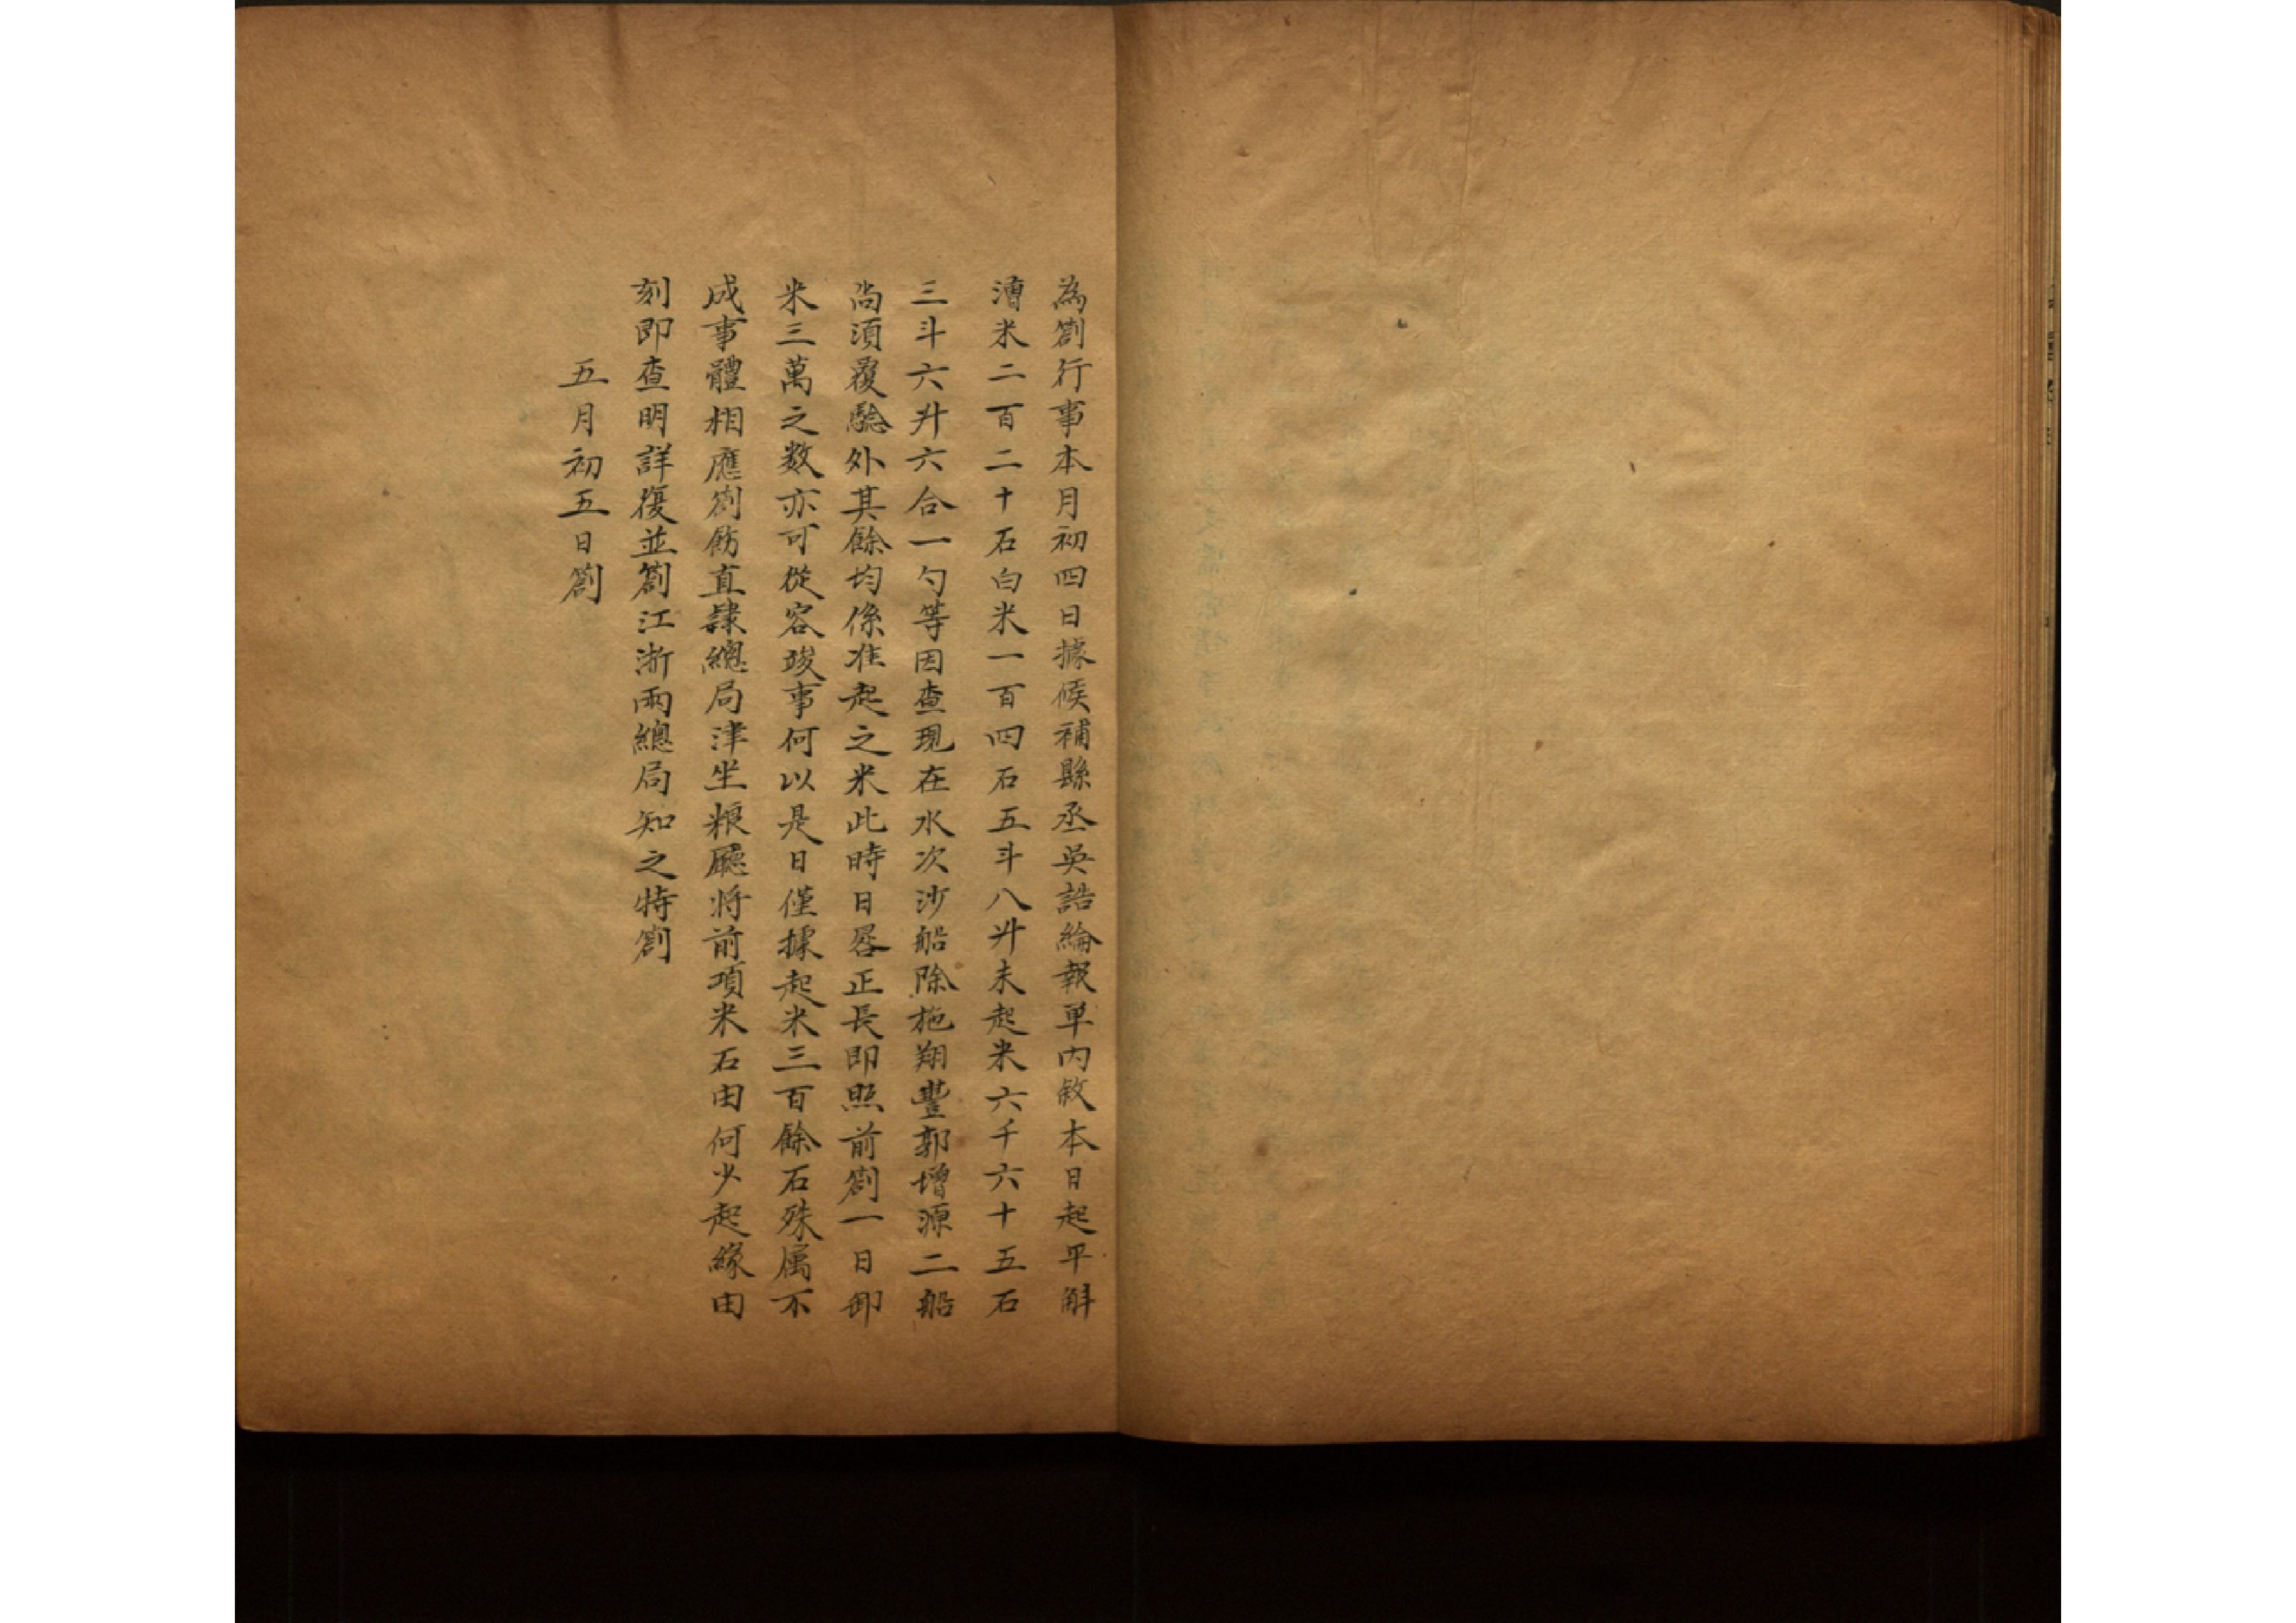 為劄行事本月初四日據候補縣丞吳誥綸報單內敘本日起平斛
漕米二百二十石白米一百四石五斗八升未起米六千六十五石
三斗六升六合一勺等因查現在水次沙船除施翔豐郭增源二船
尚須覆驗外其餘均係准起之米此時日晷正長即照前劄一日卸
米三萬之数亦可從容竣事何以是日僅據起米三百餘石殊属不
成事體相應劄飭直隸總局津坐粮廳将前項米石由何少起緣由
刻即查明詳復並劄江浙兩總局知之特劄
五月初五日劄